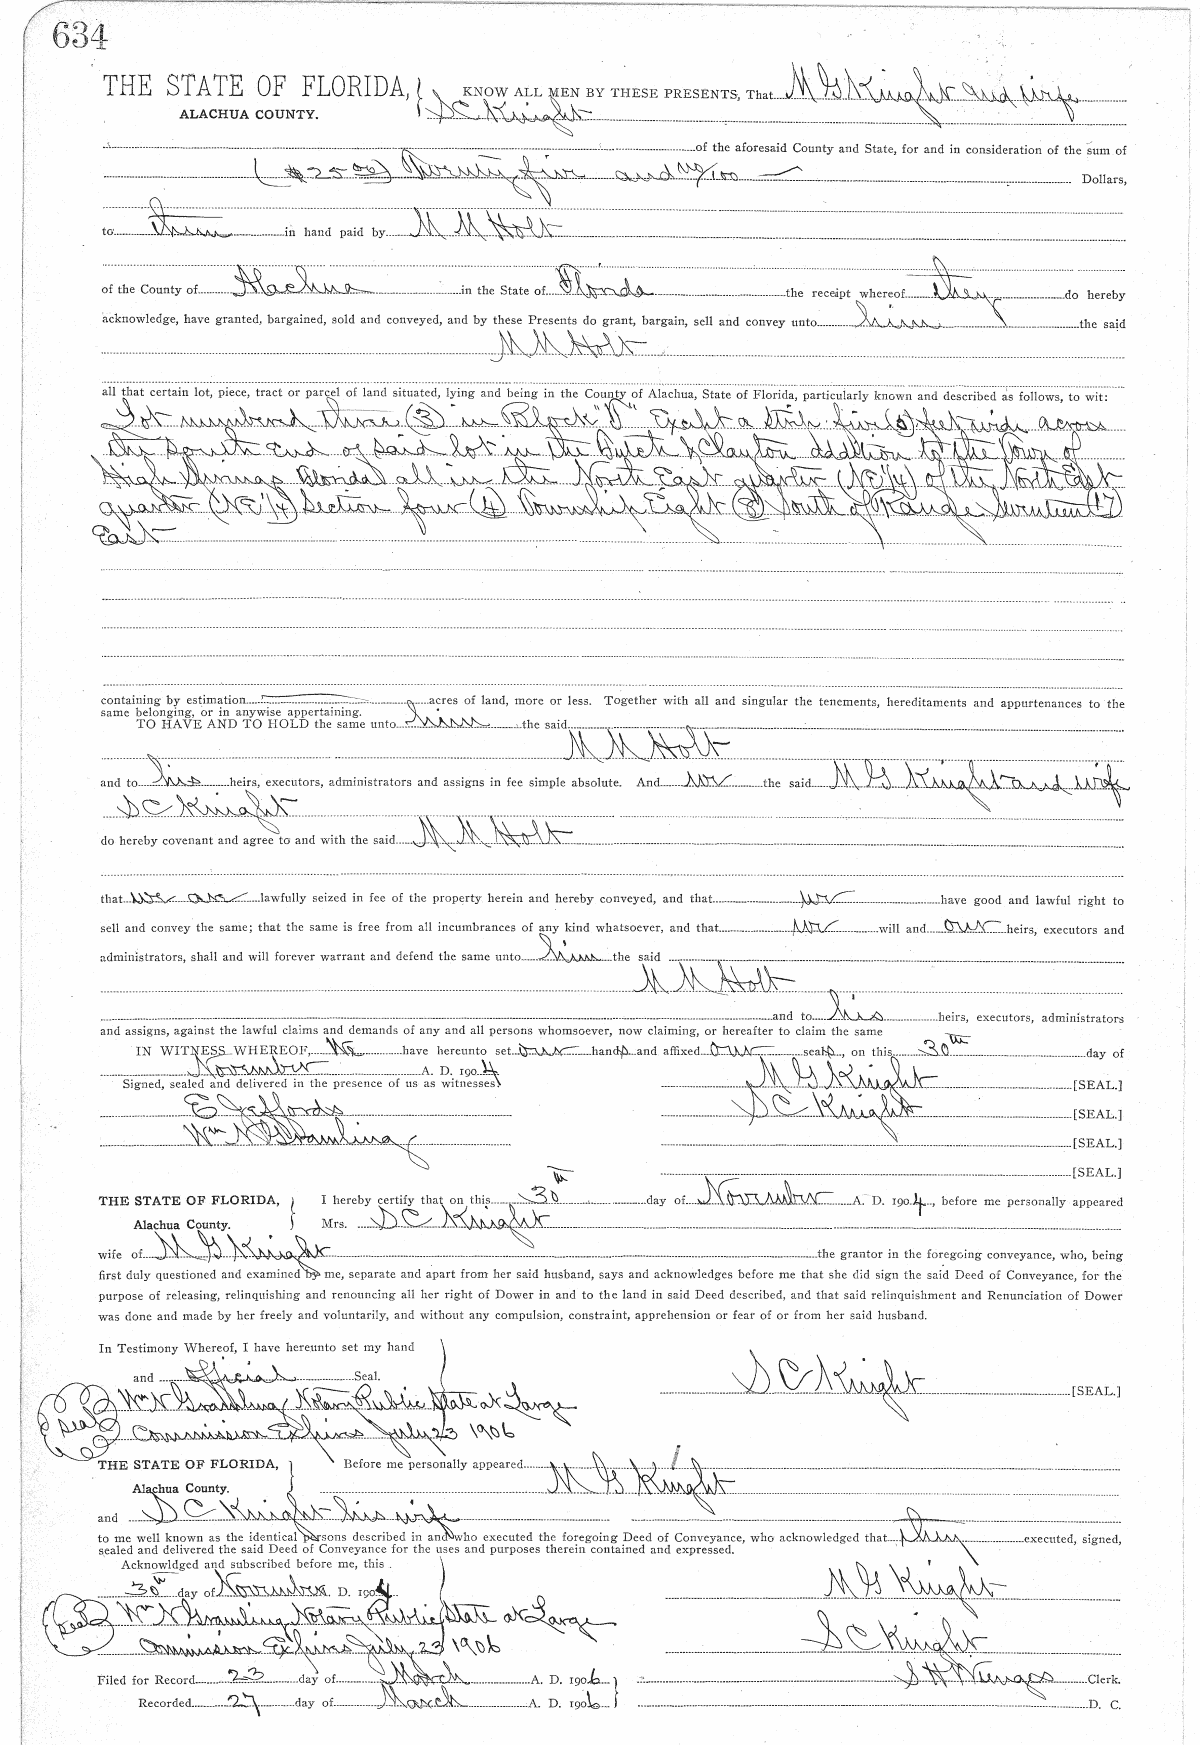 634
THE STATE OF FLORIDA, KNOW ALL MEN BY THESE PRESENTS, That M G Knight and wife
ALACHUA COUNTY. S C Knight
of the aforesaid County and State, for and in consideration of the sum of
($25 00) Twenty five and no/100 Dollars,
to them in hand paid by M M Holt
of the County of Alachua in the State of Florida the receipt whereof they do hereby
acknowledge, have granted, bargained, sold and conveyed, and by these Presents do grant, bargain, sell and convey unto him the said
M M Holt
all that certain lot, piece, tract or parcel of land situated, lying and being in the County of Alachua, State of Florida, particularly known and described as follows, to wit:
Lot numbered three (3) in Block Except a strip five (5) feet wide across
the South End of said lot in the & Clayton addition to the Town of
High Springs Florida all in the North East quarter (NE 1/4) of the North East
quarter (NE 1/4) Section four (4) Township Eight (8) South of Range Seventeen (17)
East
containing by estimation acres of land, more or less. Together with all and singular the tenements, hereditaments and appurtenances to the
same belonging, or in anywise appertaining.
TO HAVE AND TO HOLD the same unto him the said
M M Holt
and to his heirs, executors, administrators and assigns in fee simple absolute. And we the said M G Knight and wife
S C Knight
do hereby covenant and agree to and with the said M M Holt
that we are lawfully seized in fee of the property herein and hereby conveyed, and that we have good and lawful right to
sell and convey the same; that the same is free from all incumbrances of any kind whatsoever, and that we will and our heirs, executors and
administrators, shall and will forever warrant and defend the same unto him the said
M M Holt
and to his heirs, executors, administrators
and assigns, against the lawful claims and demands of any and all persons whomsoever, now claiming, or hereafter to claim the same
IN WITNESS WHEREOF, We have hereunto set our hands and affixed our seals, on this 30th day of
November A. D. 1904
Signed, sealed and delivered in the presence of us as witnesses M G Knight [SEAL.]
E Jeffords S C Knight [SEAL.]
Wm N Gramling [SEAL.]
[SEAL.]
THE STATE OF FLORIDA, I hereby certify that on this 30th day of November A. D. 1904, before me personally appeared
Alachua County. Mrs. S C Knight
wife of M G Knight the grantor in the foregoing conveyance, who, being
first duly questioned and examined by me, separate and apart from her said husband, says and acknowledges before me that she did sign the said Deed of Conveyance, for the
purpose of releasing, relinquishing and renouncing all her right of Dower in and to the land in said Deed described, and that said relinquishment and Renunciation of Dower
was done and made by her freely and voluntarily, and without any compulsion, constraint, apprehension or fear of or from her said husband.
In Testimony Whereof, I have hereunto set my hand
and official Seal. S C Knight [SEAL.]
Seal Wm N Gramling Notary Public State at Large
Commission Expires July 23 1906
THE STATE OF FLORIDA, Before me personally appeared M G Knight
Alachua County.
and S C Knight his wife
to me well known as the identical persons described in and who executed the foregoing Deed of Conveyance, who acknowledged that they executed, signed,
sealed and delivered the said Deed of Conveyance for the uses and purposes therein contained and expressed.
Acknowldged and subscribed before me, this
30th day of November D. 1904 M G Knight
Seal Wm N Gramling Notary Public State at Large
Commission Expires July 23 1906 S C Knight
Filed for Record 23 day of March A. D. 1906 S H Wienges Clerk.
Recorded 27 day of March A. D. 1906 D. C.